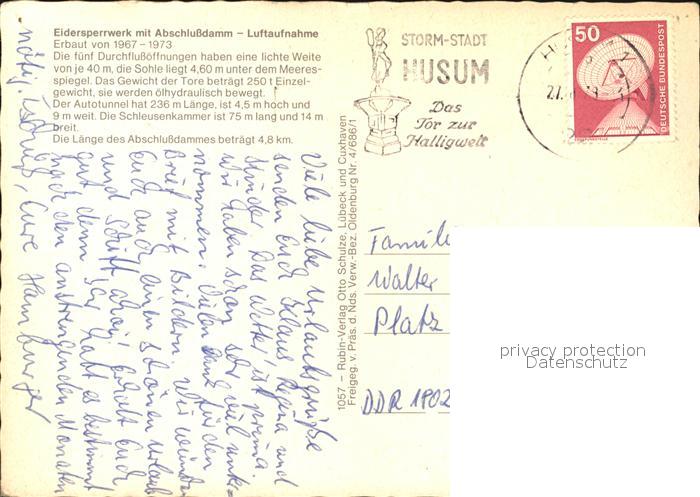 Eidersperrwerk mit Abschlußdamm – Luftaufnahme
Erbaut von 1967–1973
Die fünf Durchflußöffnungen haben eine lichte Weite
von je 40 m, die Sohle liegt 4,60 m unter dem Meeres-
spiegel. Das Gewicht der Tore beträgt 250 t Einzel-
gewicht, sie werden ölhydraulisch bewegt.
Der Autotunnel hat 236 m Länge, ist 4,5 m hoch und
9 m weit. Die Schleusenkammer ist 75 m lang und 14 m
breit.
Die Länge des Abschlußdammes beträgt 4,8 km.
Viele liebe Urlaubsgrüße
senden Euch Klaus Regina und
Das Wetter ist prima.
Wir haben schon sehr viel unter-
nommen. Vielen Dank für den
Brief mit Bildern. Wir wünschen
Euch auch einen schönen Urlaub
und Erholt Euch
gut denn Ihr habt es bestimmt
nach den anstrengenden Monaten
nötig. Tschüß, Eure Hamburger
1057 – Rubin-Verlag Otto Schulze, Lübeck und Cuxhaven
Freigeg. v. Präs. d. Nds. Verw.-Bez. Oldenburg Nr. 4/686/1
STORM-STADT
HUSUM
Das
Tor zur
Halligwelt
50
DEUTSCHE BUNDESPOST
Familie
Walter
Platz
DDR 1802
privacy protection
Datenschutz